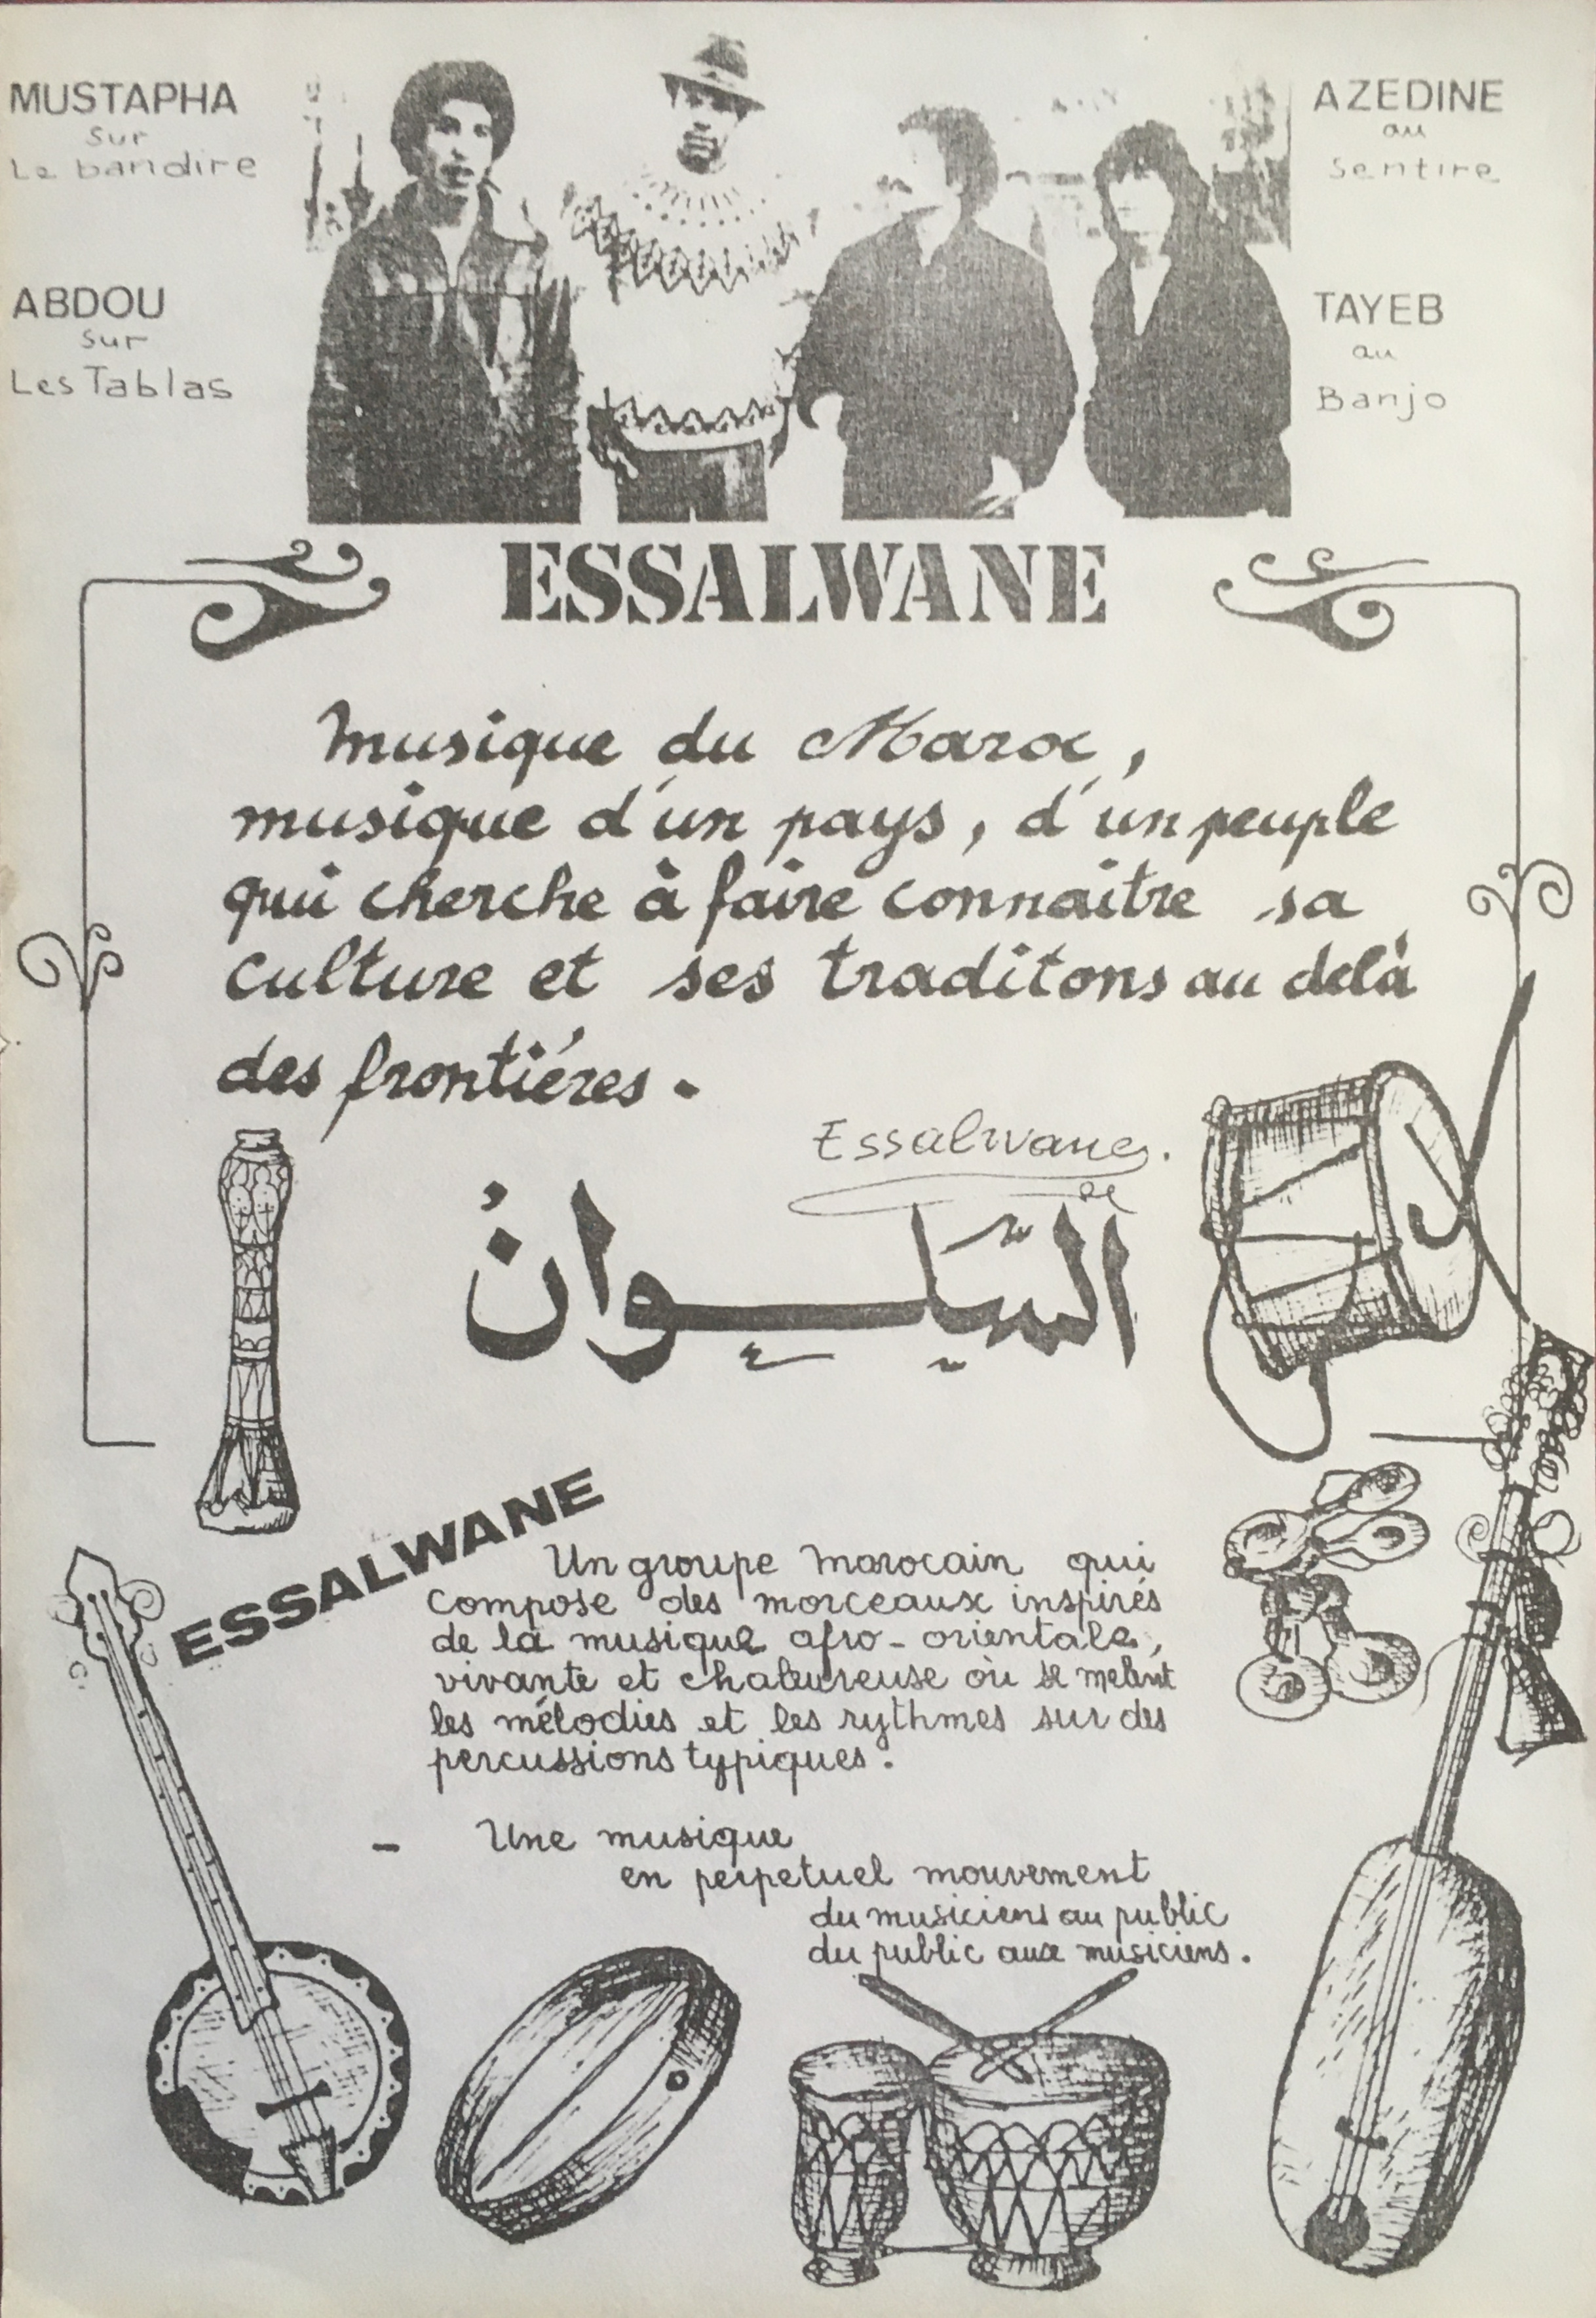 MUSTAPHA
sur
Le bandire
ABDOU
sur
Les Tablas
AZEDINE
au
Sentire
TAYEB
au
Banjo
ESSALWANE
Musique du Maroc,
musique d'un pays, d'un peuple
qui cherche à faire connaitre sa
culture et ses traditons au delà
des frontiéres.
Essalwane.
السَّلوانُ
ESSALWANE
Un groupe marocain qui
compose des morceaux inspirés
de la musique afro-orientale,
vivante et chaleureuse où se melent
les mélodies et les rythmes sur des
percussions typiques.
- Une musique
en perpetuel mouvement
du musiciens au public
du public aux musiciens.